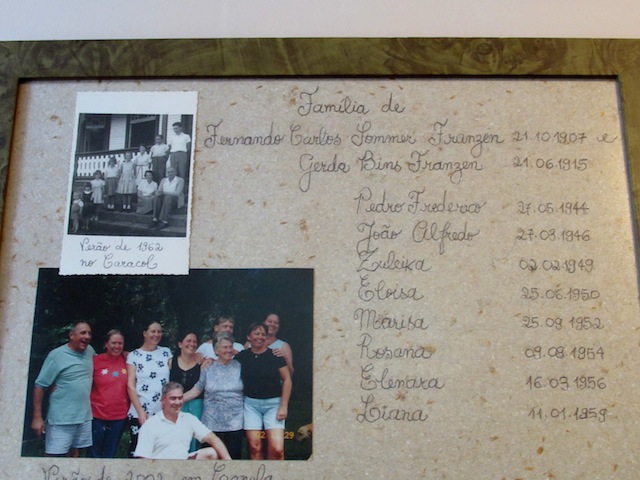 Família de
Fernando Carlos Sommer Franzen 21.10.1907 e
Gerda Bins Franzen 21.06.1915
Pedro Frederico 27.05.1944
João Alfredo 27.03.1946
Zuleika 02.02.1949
Eloisa 25.06.1950
Marisa 25.09.1952
Rosana 09.09.1954
Elenara 16.03.1956
Liana 11.01.1959
Verão de 1962
no Caracol
Verão de 2002 em Canela